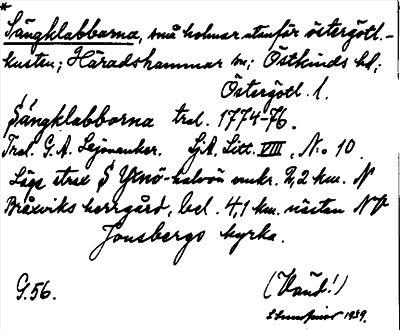 *
Sängklabbarna, små holmar utanför östergötl.-
kusten; Häradshammar sn; Östkinds hd;
Östergötl. l.
Sängklabborna trol. 1774-76.
Trol. G.A. Lejonanker. SjA. Litt. VIII, No 10
Läge strax S Yxnö-halvön omkr. 2,2 km. N
Bråxviks herrgård, bel. 4,1 km. nästan NV
Jonsbergs kyrka.
G.56. (Vaud!)
1939.